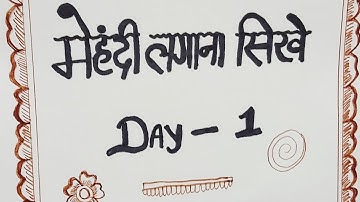 मेहंदी लगाना सिखे
DAY - 1